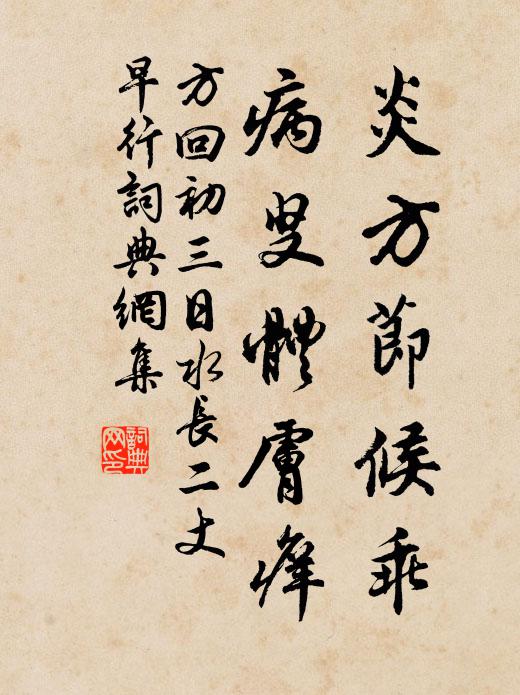 炎方節候乖
病叟體膚癢
方回初三日水長二丈
早行詞典網集
詞典
网印